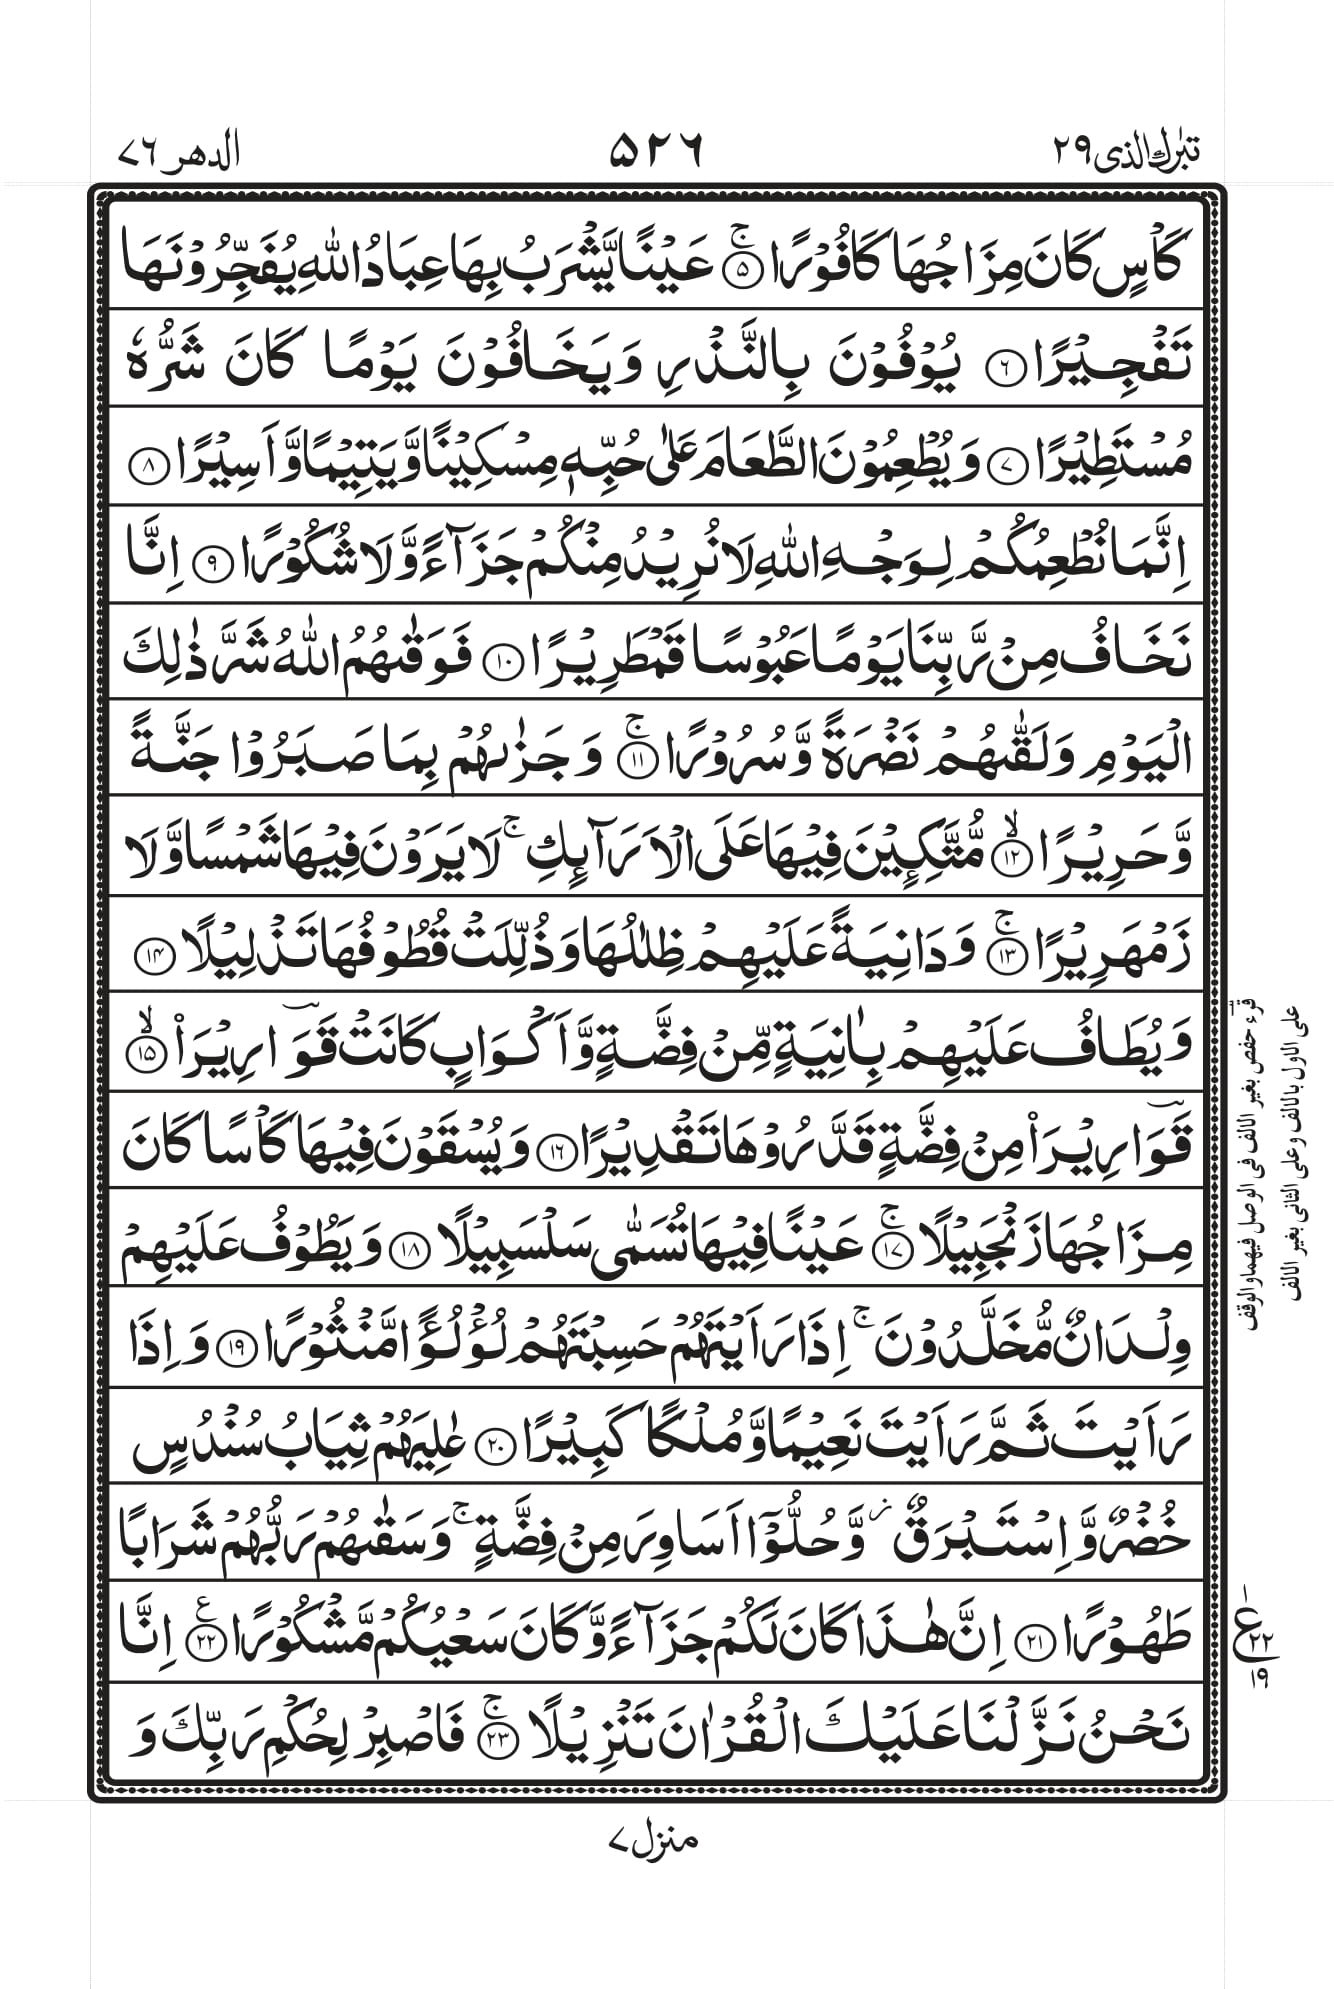 تبٰرك الذى ٢٩
٥٢٦
الدهر ٧٦
كَاۡسٍ كَانَ مِزَاجُهَا كَافُوۡرًا ۚ‏﴿۵﴾ عَيۡنًا يَّشۡرَبُ بِهَا عِبَادُ اللّٰهِ يُفَجِّرُوۡنَهَا
تَفۡجِيۡرًا ﴿۶﴾ يُوۡفُوۡنَ بِالنَّذۡرِ وَيَخَافُوۡنَ يَوۡمًا كَانَ شَرُّهٗ
مُسۡتَطِيۡرًا ﴿۷﴾ وَيُطۡعِمُوۡنَ الطَّعَامَ عَلٰى حُبِّهٖ مِسۡكِيۡنًا وَّيَتِيۡمًا وَّاَسِيۡرًا ﴿۸﴾
اِنَّمَا نُطۡعِمُكُمۡ لِوَجۡهِ اللّٰهِ لَا نُرِيۡدُ مِنۡكُمۡ جَزَآءً وَّلَا شُكُوۡرًا ﴿۹﴾ اِنَّا
نَخَافُ مِنۡ رَّبِّنَا يَوۡمًا عَبُوۡسًا قَمۡطَرِيۡرًا ﴿۱۰﴾ فَوَقٰٮهُمُ اللّٰهُ شَرَّ ذٰلِكَ
الۡيَوۡمِ وَلَقّٰٮهُمۡ نَضۡرَةً وَّسُرُوۡرًا ۚ‏﴿۱۱﴾ وَجَزٰٮهُمۡ بِمَا صَبَرُوۡا جَنَّةً
وَّحَرِيۡرًا ۙ‏﴿۱۲﴾ مُّتَّكِـِٕيۡنَ فِيۡهَا عَلَى الۡاَرَآٮِٕكِ‌ۚ لَا يَرَوۡنَ فِيۡهَا شَمۡسًا وَّلَا
زَمۡهَرِيۡرًا ۚ‏﴿۱۳﴾ وَدَانِيَةً عَلَيۡهِمۡ ظِلٰلُهَا وَذُلِّلَتۡ قُطُوۡفُهَا تَذۡلِيۡلًا ﴿۱۴﴾
وَيُطَافُ عَلَيۡهِمۡ بِاٰنِيَةٍ مِّنۡ فِضَّةٍ وَّاَكۡوَابٍ كَانَتۡ قَوَارِيۡرَا۟ ۙ‏﴿۱۵﴾
قَوَارِيۡرَا۟ مِنۡ فِضَّةٍ قَدَّرُوۡهَا تَقۡدِيۡرًا ﴿۱۶﴾ وَيُسۡقَوۡنَ فِيۡهَا كَاۡسًا كَانَ
مِزَاجُهَا زَنۡجَبِيۡلًا ۚ‏﴿۱۷﴾ عَيۡنًا فِيۡهَا تُسَمّٰى سَلۡسَبِيۡلًا ﴿۱۸﴾ وَيَطُوۡفُ عَلَيۡهِمۡ
وِلۡدَانٌ مُّخَلَّدُوۡنَ‌ۚ اِذَا رَاَيۡتَهُمۡ حَسِبۡتَهُمۡ لُـؤۡلُـؤًا مَّنۡثُوۡرًا ﴿۱۹﴾ وَاِذَا
رَاَيۡتَ ثَمَّ رَاَيۡتَ نَعِيۡمًا وَّمُلۡكًا كَبِيۡرًا ﴿۲۰﴾ عٰلِيَهُمۡ ثِيَابُ سُنۡدُسٍ
خُضۡرٌ وَّاِسۡتَبۡرَقٌ‌ز وَّحُلُّوۡۤا اَسَاوِرَ مِنۡ فِضَّةٍ‌ۚ وَسَقٰٮهُمۡ رَبُّهُمۡ شَرَابًا
طَهُوۡرًا ﴿۲۱﴾ اِنَّ هٰذَا كَانَ لَـكُمۡ جَزَآءً وَّكَانَ سَعۡيُكُمۡ مَّشۡكُوۡرًا ﴿۲۲﴾ع اِنَّا
نَحۡنُ نَزَّلۡنَا عَلَيۡكَ الۡقُرۡاٰنَ تَنۡزِيۡلًا ۚ‏﴿۲۳﴾ فَاصۡبِرۡ لِحُكۡمِ رَبِّكَ وَ
قرء حفص بغير الالف فى الوصل فيهما والوقف
على الاول بالالف وعلى الثانى بغير الالف
١
ع ٢٢
١٩
منزل ٧